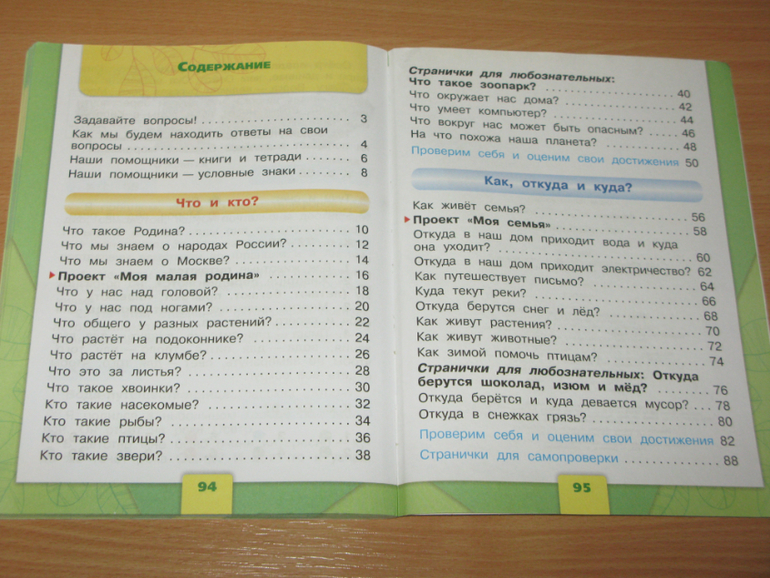 Содержание
Задавайте вопросы! 3
Как мы будем находить ответы на свои
вопросы 4
Наши помощники — книги и тетради 6
Наши помощники — условные знаки 8
Что и кто?
Что такое Родина? 10
Что мы знаем о народах России? 12
Что мы знаем о Москве? 14
Проект «Моя малая родина» 16
Что у нас над головой? 18
Что у нас под ногами? 20
Что общего у разных растений? 22
Что растёт на подоконнике? 24
Что растёт на клумбе? 26
Что это за листья? 28
Что такое хвоинки? 30
Кто такие насекомые? 32
Кто такие рыбы? 34
Кто такие птицы? 36
Кто такие звери? 38
94
Странички для любознательных:
Что такое зоопарк? 40
Что окружает нас дома? 42
Что умеет компьютер? 44
Что вокруг нас может быть опасным? 46
На что похожа наша планета? 48
Проверим себя и оценим свои достижения 50
Как, откуда и куда?
Как живёт семья? 56
Проект «Моя семья» 58
Откуда в наш дом приходит вода и куда
она уходит? 60
Откуда в наш дом приходит электричество? 62
Как путешествует письмо? 64
Куда текут реки? 66
Откуда берутся снег и лёд? 68
Как живут растения? 70
Как живут животные? 72
Как зимой помочь птицам? 74
Странички для любознательных: Откуда
берутся шоколад, изюм и мёд? 76
Откуда берётся и куда девается мусор? 78
Откуда в снежках грязь? 80
Проверим себя и оценим свои достижения 82
Странички для самопроверки 88
95